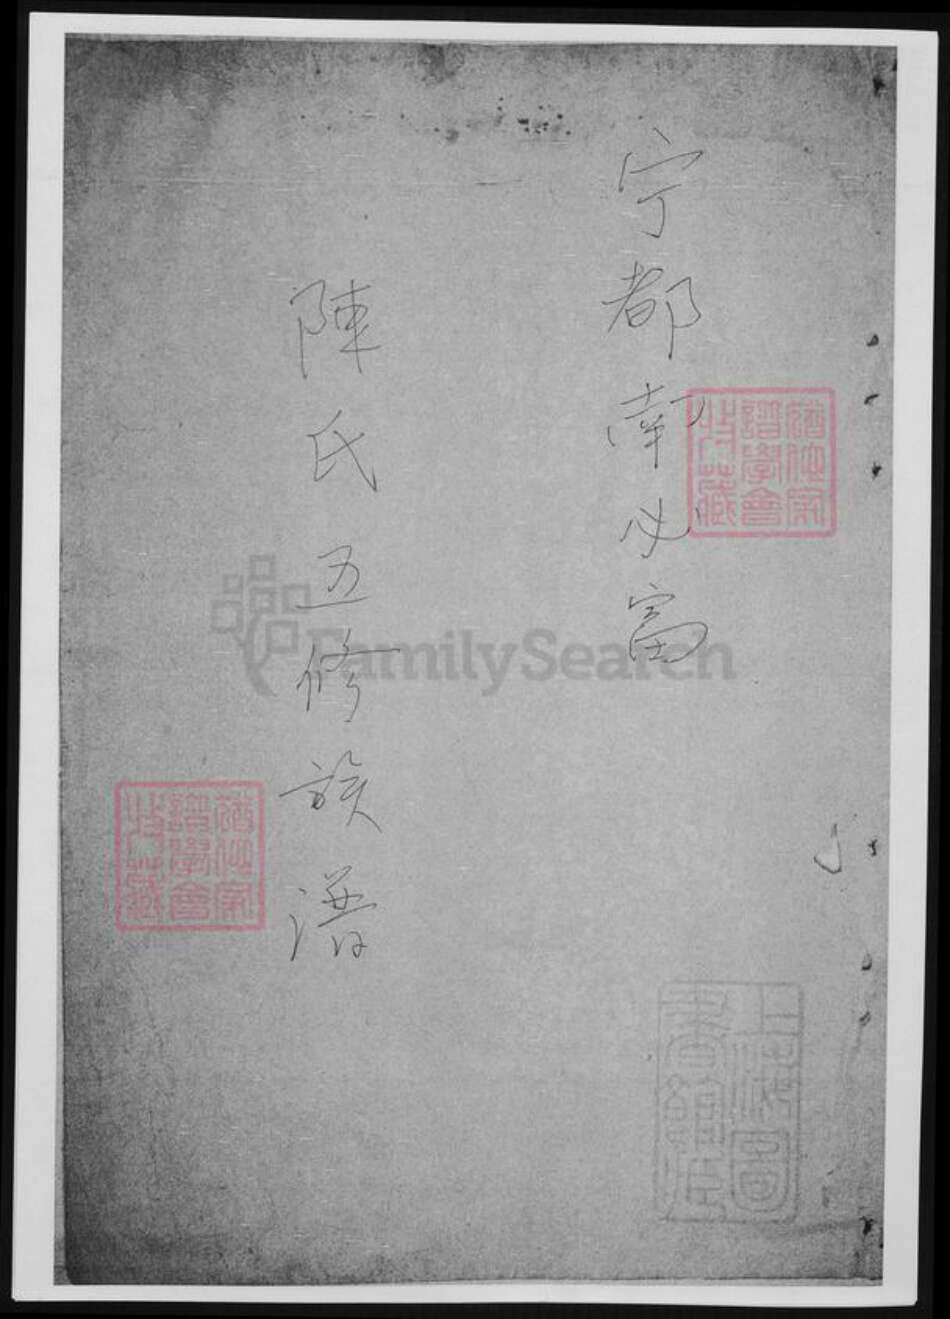 宁都南必富
陳氏五修族譜
猶他家
譜學會
特藏
猶他家
譜學會
特藏
上海圖
書館藏
FamilySearch